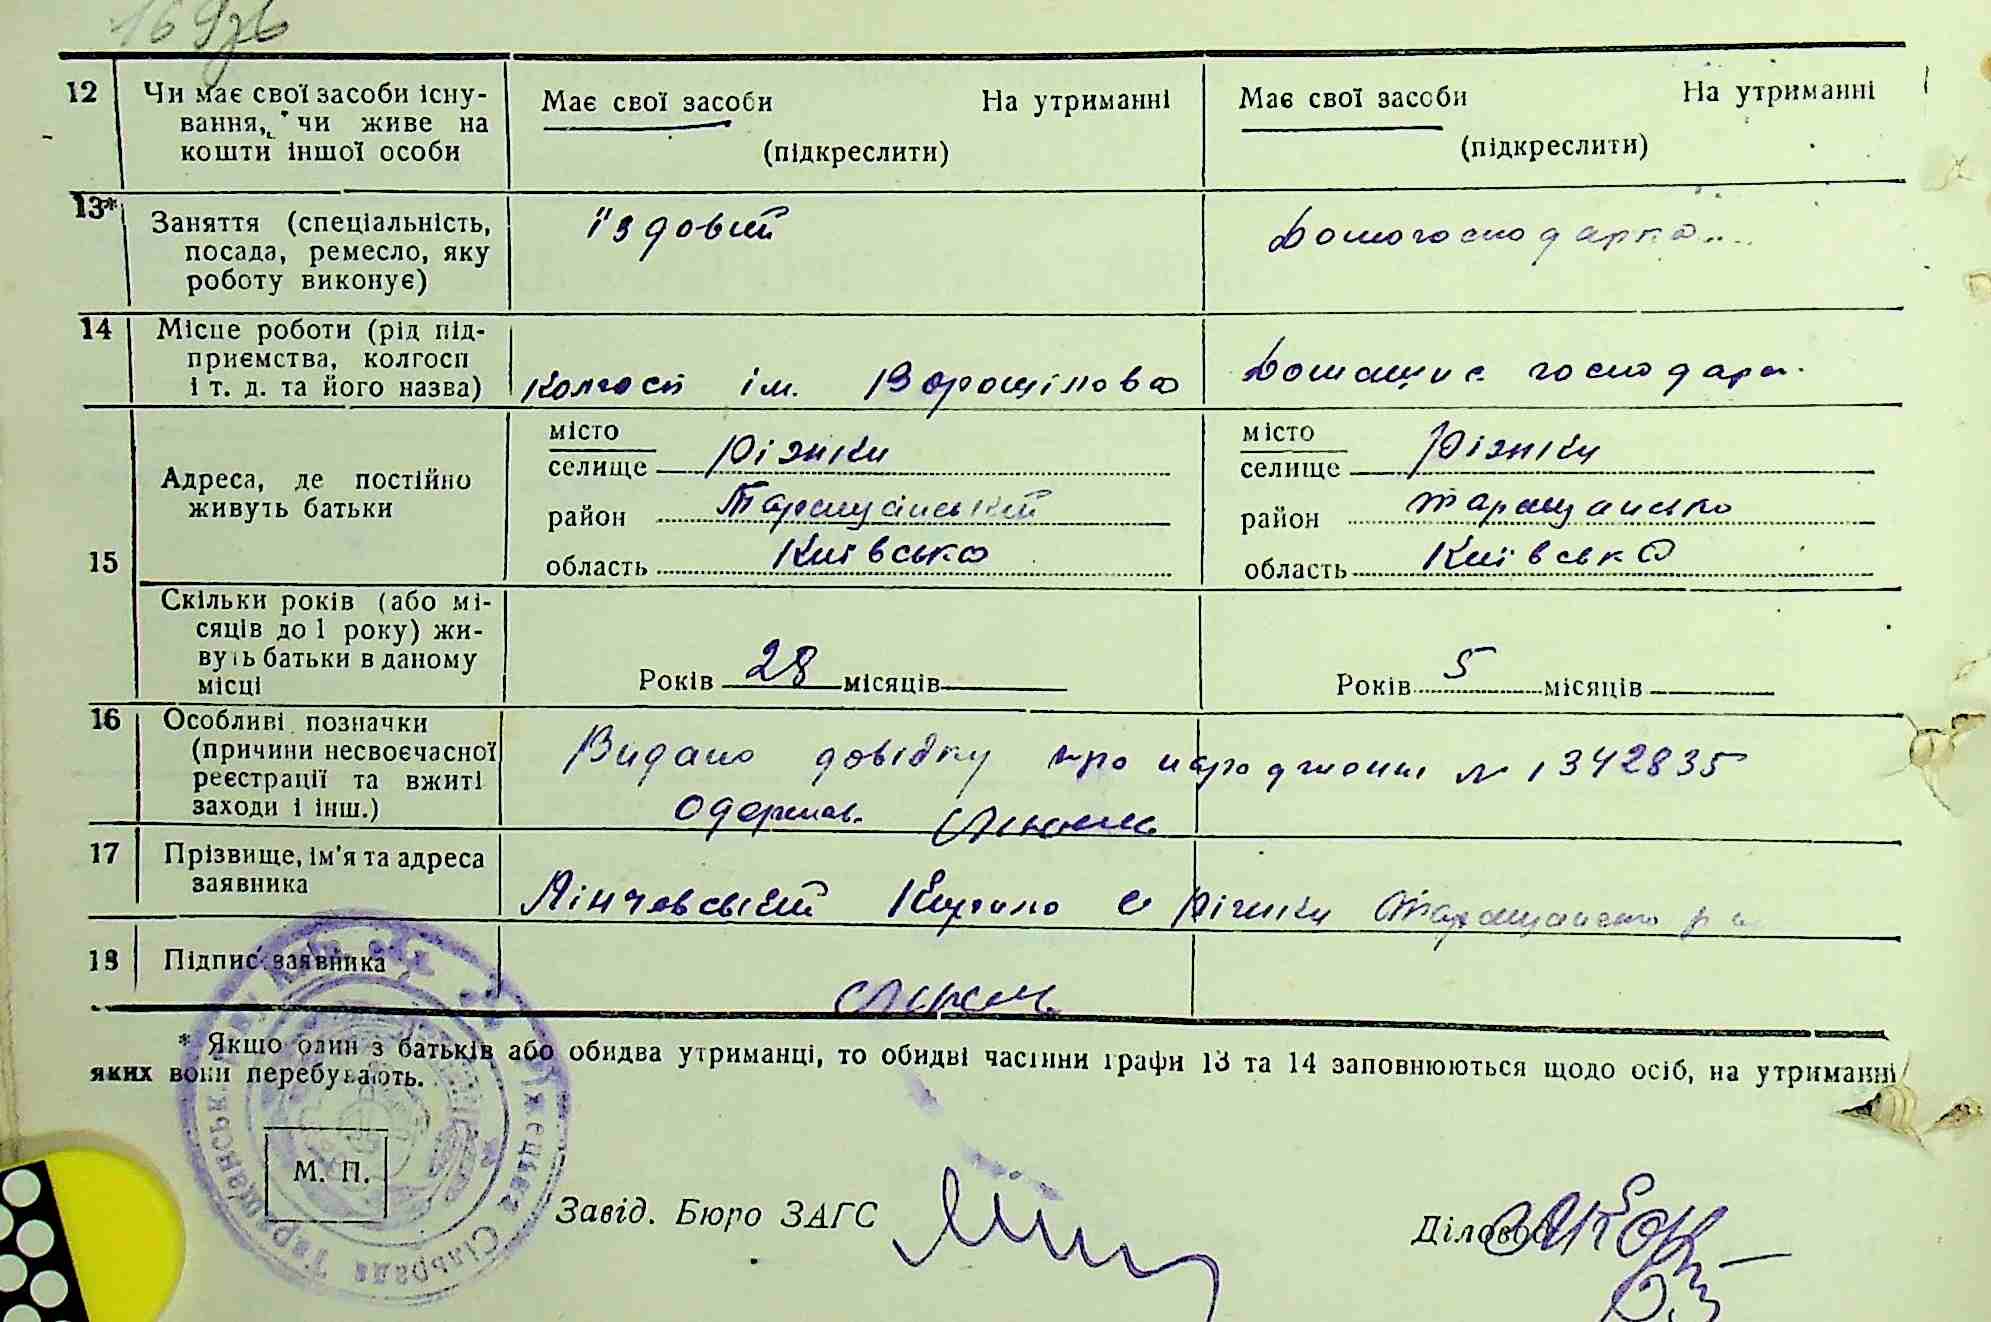 169зв
12 Чи має свої засоби існу-
вання, чи живе на
кошти іншої особи
Має свої засоби На утриманні
(підкреслити)
Має свої засоби На утриманні
(підкреслити)
13* Заняття (спеціальність,
посада, ремесло, яку
роботу виконує)
їздовий
Домогосподарка
14 Місце роботи (рід під-
приємства, колгосп
і т. д. та його назва)
Колгосп ім. Ворошілова
Домашнє господар.
15 Адреса, де постійно
живуть батьки
місто
селище Ріжки
район Таращанський
область Київська
місто
селище Ріжки
район Таращансько
область Київська
Скільки років (або мі-
сяців до 1 року) жи-
вуть батьки в даному
місці
Років 28 місяців
Років 5 місяців
16 Особливі позначки
(причини несвоєчасної
реєстрації та вжиті
заходи і інш.)
Видано довідку про народження № 1342835
Одержав
17 Прізвище, ім'я та адреса
заявника
Лінчевський Кирило с Ріжки Таращансько р н
18 Підпис заявника
* Якщо один з батьків або обидва утриманці, то обидві частини графи 13 та 14 заповнюються щодо осіб, на утриманні
яких вони перебувають.
М. П.
Завід. Бюро ЗАГС
Діловод
Сільрада